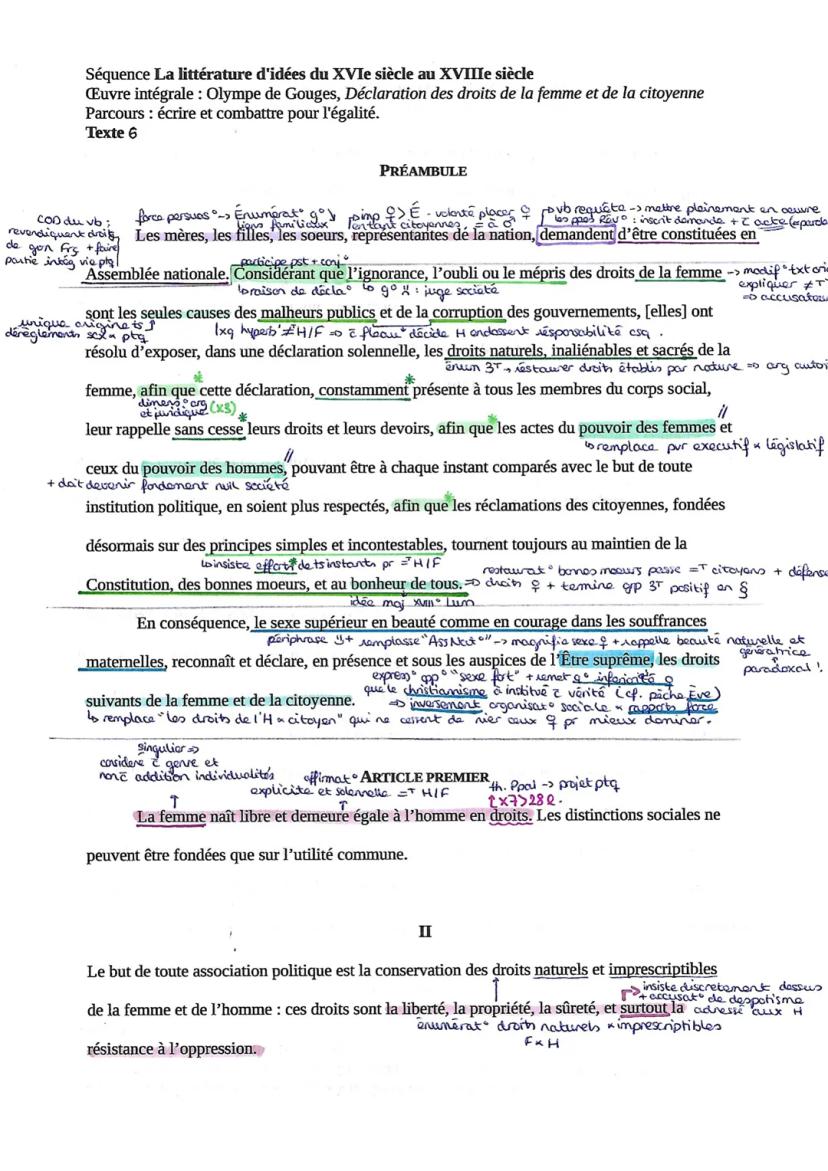 Séquence La littérature d'idées du XVIe siècle au XVIIIe siècle
Œuvre intégrale : Olympe de Gouges, Déclaration des droits de la femme et de la citoyenne
Parcours : écrire et combattre pour l'égalité.
Texte 6
PRÉAMBULE
COD du vb :
revendiquent droits
de gon Frs + faire
partie intég vie ptq
force persuas° -> Énumérat° g°
liens familiaux
volonté placer ♀
en tant citoyennes
vb requête -> mettre pleinement en oeuvre
inscrit demande
Les mères, les filles, les soeurs, représentantes de la nation, demandent d'être constituées en
participe pst + conj°
Assemblée nationale. Considérant que l'ignorance, l'oubli ou le mépris des droits de la femme
-> modif° txt ori
expliquer ≠ T
=> accusateu
raison de décla°
juge société
sont les seules causes des malheurs publics et de la corruption des gouvernements, [elles] ont
unique origine ts
dérèglements scx × ptq
lxq hyperb' ≠ H/F => décide H endossent résponsabilité csq.
résolu d'exposer, dans une déclaration solennelle, les droits naturels, inaliénables et sacrés de la
énum 3T -> restaurer droits établis par nature => arg autori
femme, afin que cette déclaration, constamment présente à tous les membres du corps social,
dimens° arg
et juridique (x3)
leur rappelle sans cesse leurs droits et leurs devoirs, afin que les actes du pouvoir des femmes et
remplace pvr executif × législatif
ceux du pouvoir des hommes, pouvant être à chaque instant comparés avec le but de toute
+ doit devenir fondement nvll société
institution politique, en soient plus respectés, afin que les réclamations des citoyennes, fondées
désormais sur des principes simples et incontestables, tournent toujours au maintien de la
insiste effort de ts instants pr = H/F
restaurat° bonnes moeurs passe = T citoyens + défense
Constitution, des bonnes moeurs, et au bonheur de tous. => droits ♀ + termine grp 3T positif en §
idée maj XVIII° Lum
En conséquence, le sexe supérieur en beauté comme en courage dans les souffrances
périphrase + remplasse "Ass Nat°" -> magnifie sexe ♀ + rappelle beauté naturelle et
génératrice
paradoxal !
maternelles, reconnaît et déclare, en présence et sous les auspices de l'Être suprême, les droits
express° opp° "sexe fort" + remet q° inferiorité ♀
que le christianisme à institué c̄ vérité (cf. pêche Ève)
suivants de la femme et de la citoyenne.
=> inversement organisat° sociale × rapports force
remplace "les droits de l'H × citoyen" qui ne cessent de nier ceux ♀ pr mieux dominer.
singulier =>
considere c̄ genre et
non c̄ addition individualités
affirmat°
explicite et solennelle = T H/F
ARTICLE PREMIER
th. Ppal -> projet ptq
↑x7>28l.
La femme naît libre et demeure égale à l'homme en droits. Les distinctions sociales ne
peuvent être fondées que sur l'utilité commune.
II
Le but de toute association politique est la conservation des droits naturels et imprescriptibles
insiste discretement dessus
+ accusat° de despotisme
adressé aux H
de la femme et de l'homme : ces droits sont la liberté, la propriété, la sûreté, et surtout la
énumérat° droits naturels × imprescriptibles
F × H
résistance à l'oppression.